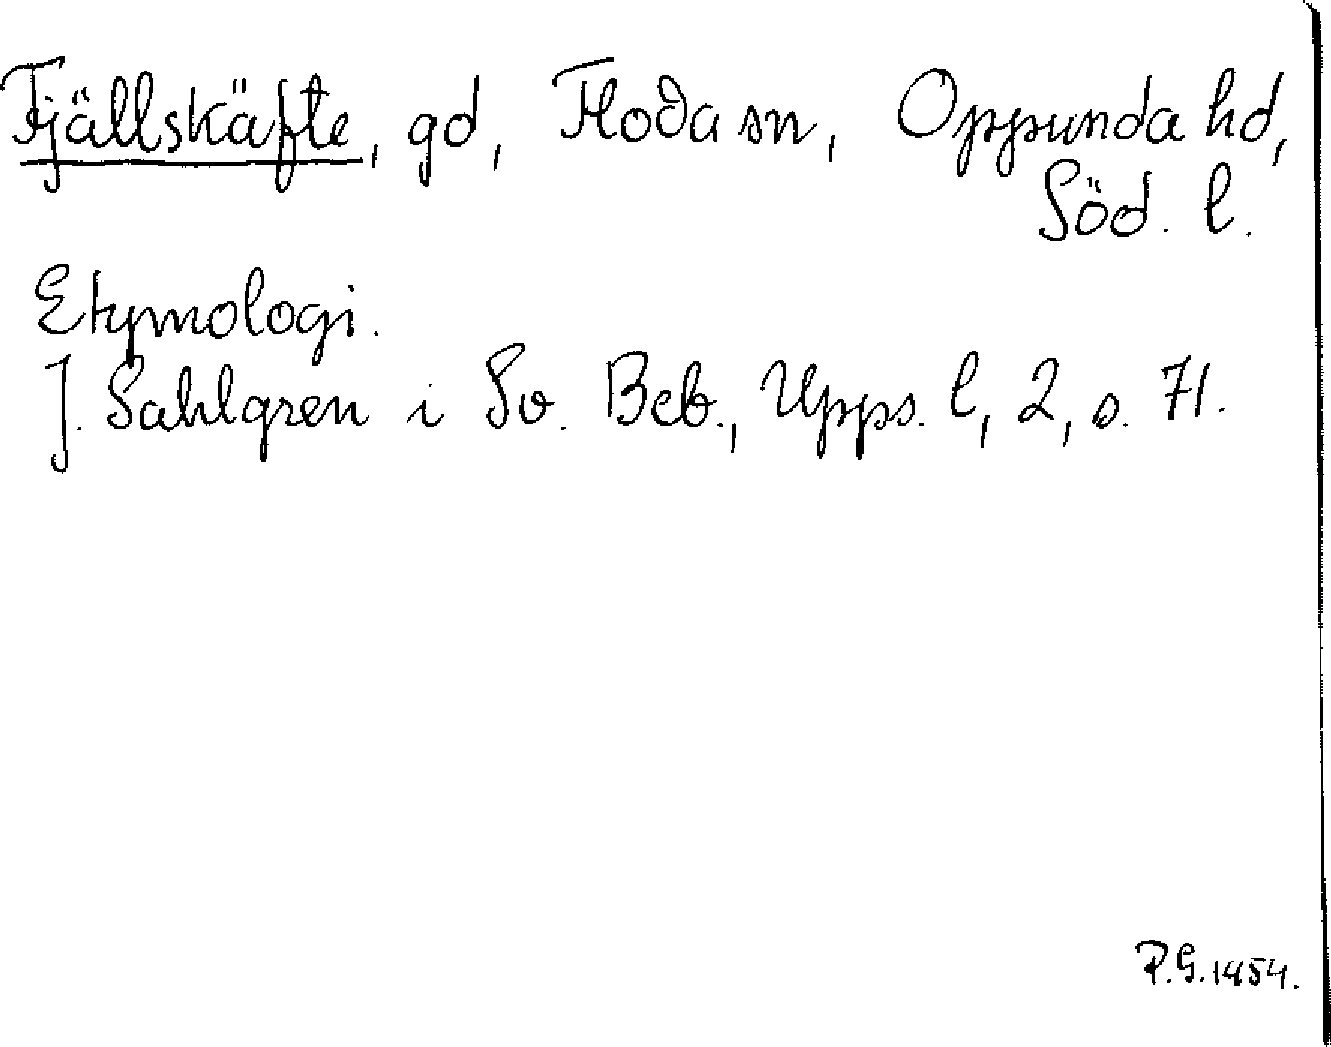 Fjällskäfte, gd, Floda sn, Oppunda hd,
Söd. l.
Etymologi.
J. Sahlgren i Sv. Beb., Upps. l, 2, s. 71.
P.G. 1954.